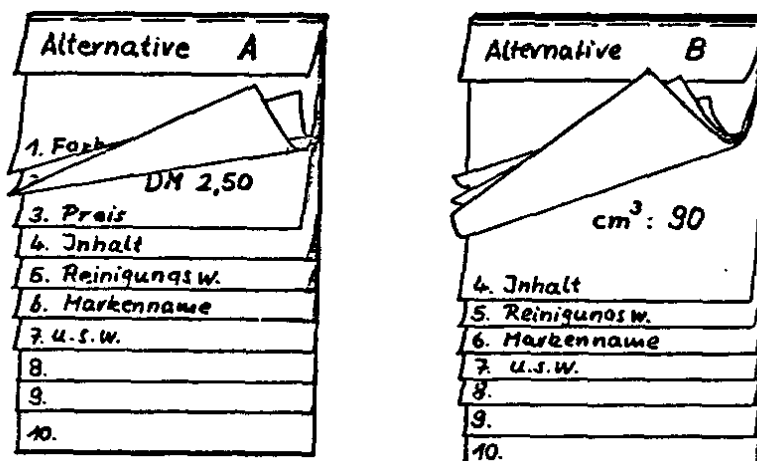 Alternative A
1. Farb
DM 2,50
3. Preis
4. Inhalt
5. Reinigungsw.
6. Markenname
7. u.s.w.
8.
9.
10.
Alternative B
cm³: 90
4. Inhalt
5. Reinigungsw.
6. Markenname
7. u.s.w.
8.
9.
10.